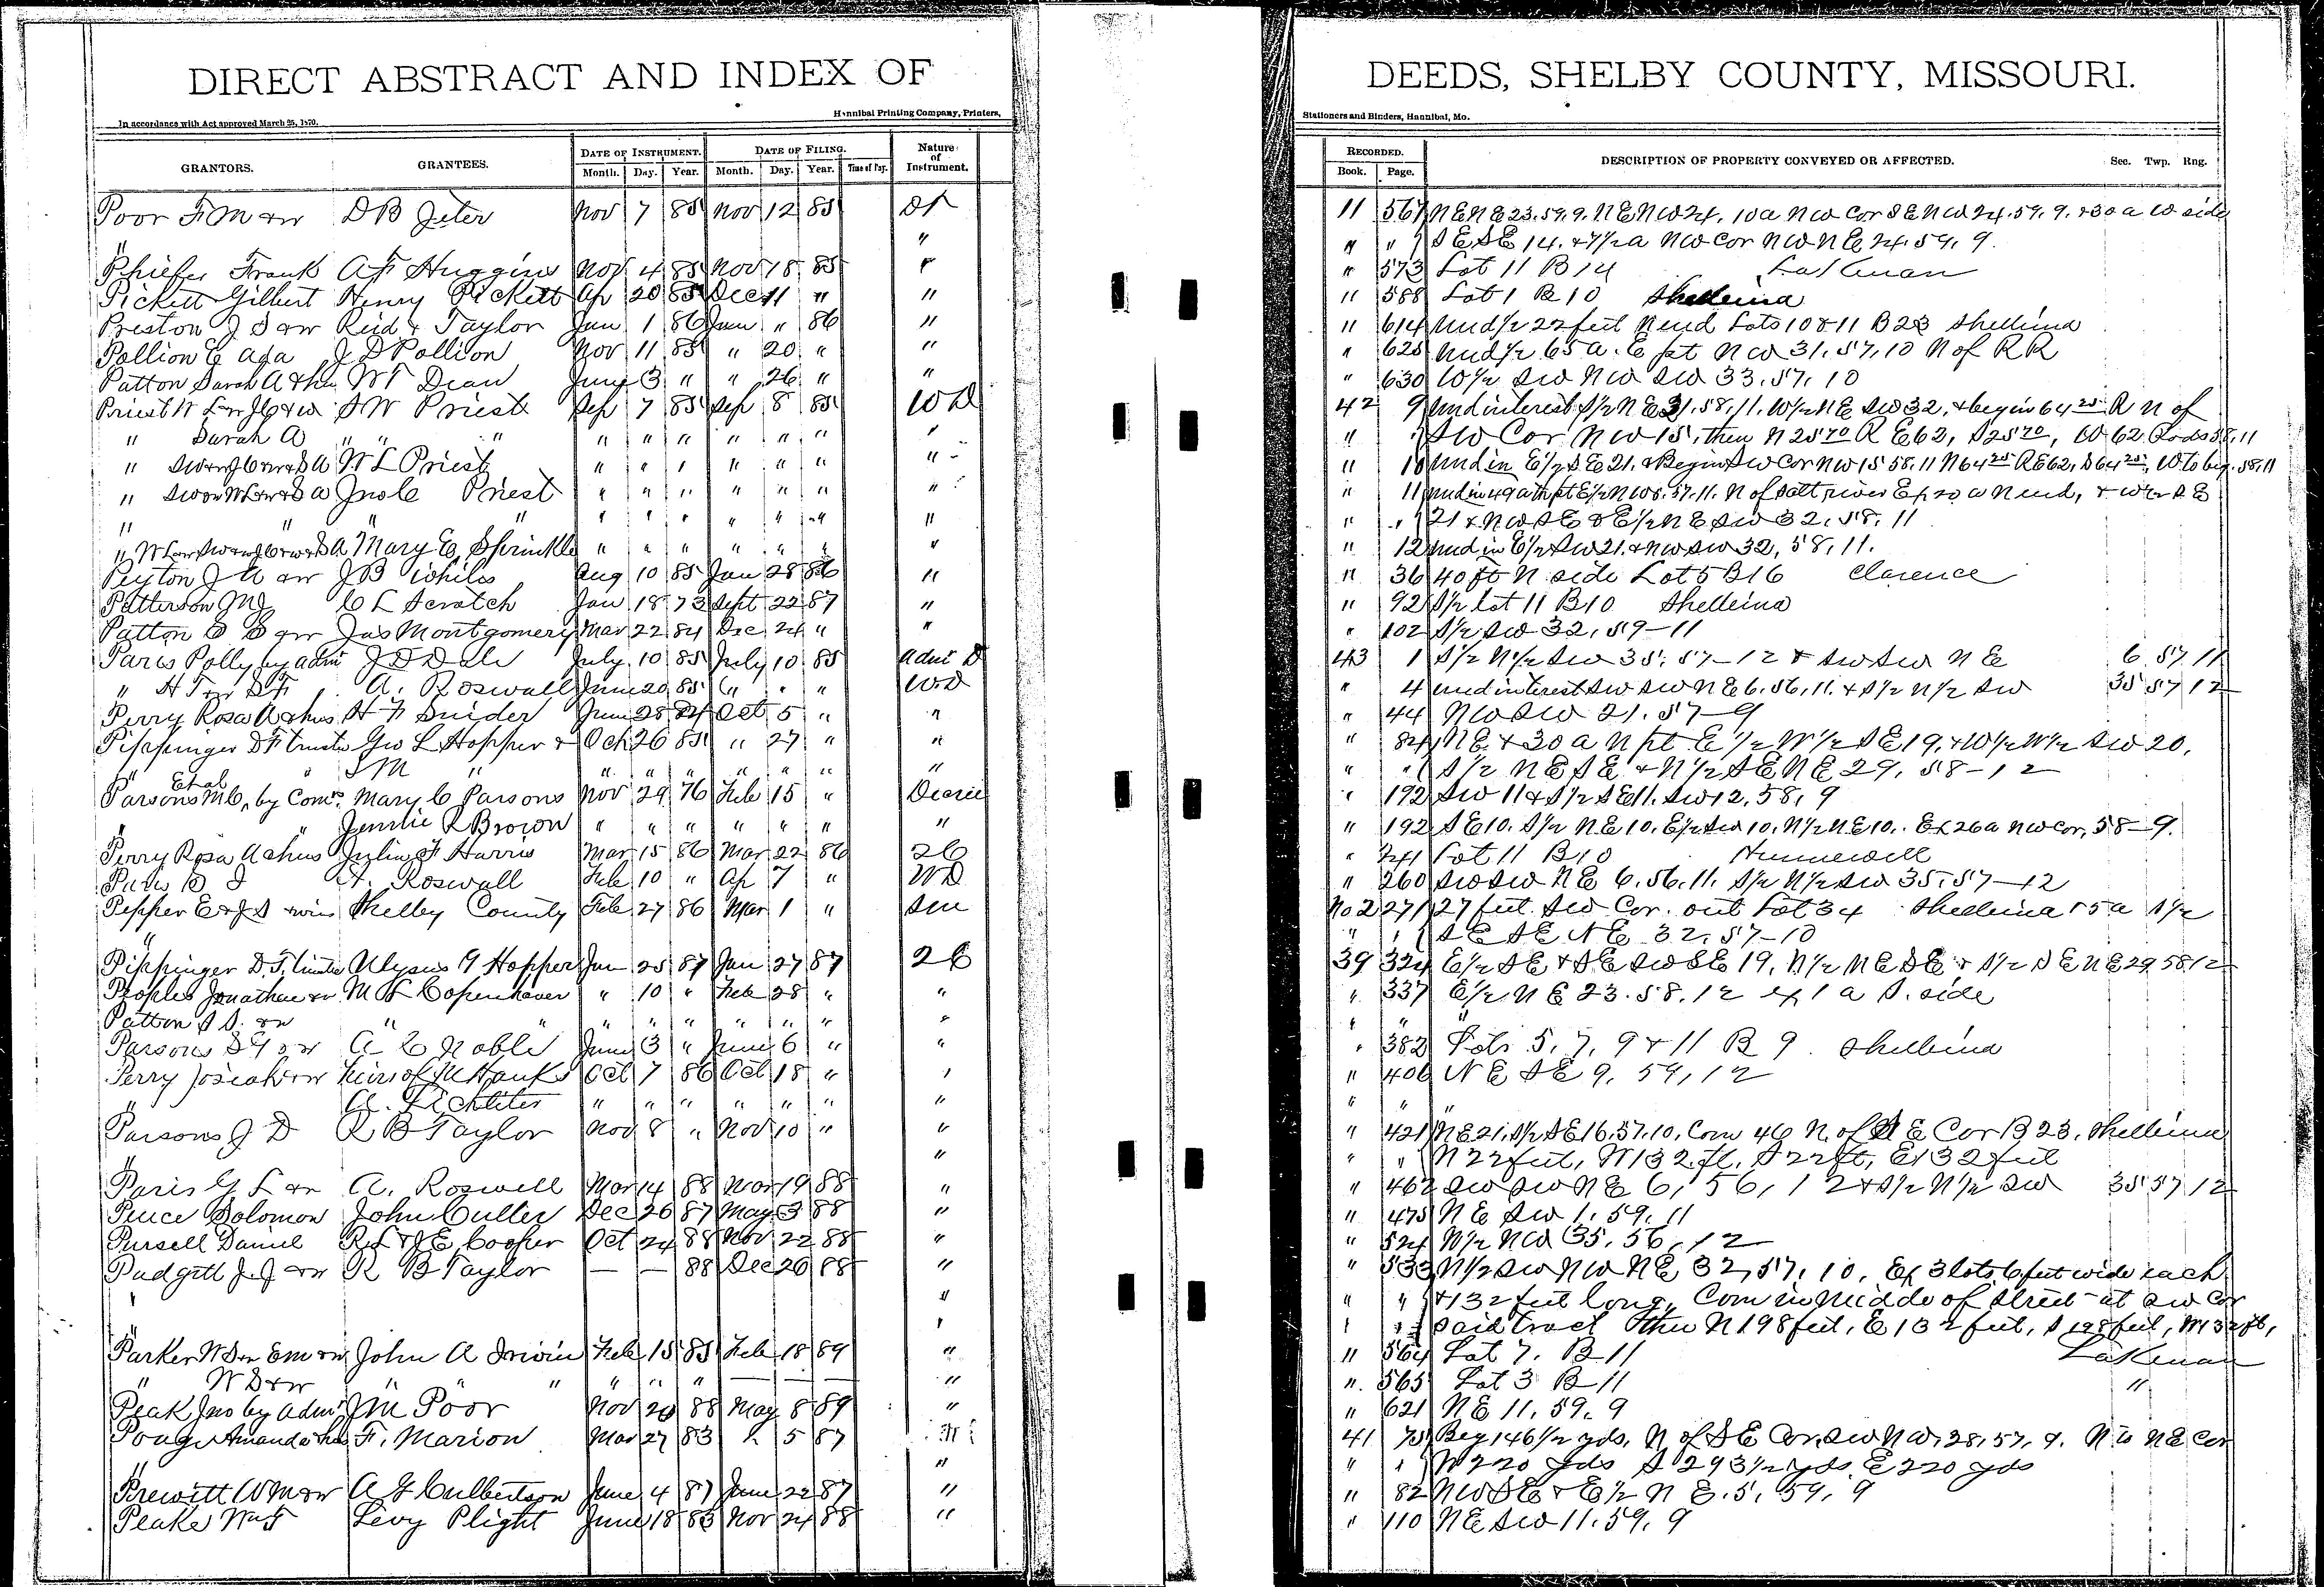 DIRECT ABSTRACT AND INDEX OF DEEDS, SHELBY COUNTY, MISSOURI.
In accordance with Act approved March 25, 1870. Hannibal Printing Company, Printers, Stationers and Binders, Hannibal, Mo.
GRANTORS. GRANTEES. DATE OF INSTRUMENT. DATE OF FILING. Nature of Instrument. RECORDED. DESCRIPTION OF PROPERTY CONVEYED OR AFFECTED. Sec. Twp. Rng.
Month. Day. Year. Month. Day. Year. Time of Day. Book. Page.
Poor F M & w D B Jeter Nov 7 85 Nov 12 85 DT 11 567 NE NE 23.59.9. NE NW 24. 10 a NW Cor SE NW 24.59.9. & 30 a W side
" " " " SE SE 14. & 7 1/2 a NW Cor NW NE 24.59.9.
Phiefer Frank A F Huggins Nov 4 85 Nov 18 85 " " 573 Lot 11 B 14 Lakenan
Pickett Gilbert Henry Pickett Ap 20 85 Dec 11 " " 11 588 Lot 1 B 10 Shelbina
Preston J S & w Reid & Taylor Jan 1 86 Jan " 86 " 11 614 und 1/2 22 feet N end Lots 10 & 11 B 23 Shelbina
Pollion E Ada J D Pollion Nov 11 85 " 20 " " " 625 und 1/2 65 a. E pt NW 31.57.10 N of RR
Patton Sarah A & hus W T Dean June 3 " " 26 " " " 630 W 1/2 SW NW SW 33.57.10
Priest W L & w J C & w S W Priest Sep 7 85 Sep 8 85 WD 42 9 und interest S 1/2 NE 31.58.11. W 1/2 NE SW 32. & begin 64 25 R N of
" Sarah A " " " " " " " " " " " " SW Cor NW 15, then N 25 70 R E 62, S 25 70, W 62 Rods 58,11
" SW & w J C & w & S A W L Priest " " " " " " " " 10 und in E 1/2 SE 21. & Begin SW Cor NW 15 58.11 N 64 25 R E 62, S 64 25, W to beg. 58.11
" SW & w W L & w & S A Jno C Priest " " " " " " " " 11 und in 49 a th pt E 1/2 NW 8.57.11. N of Salt river Ex 20 a N end, & W 1/2 SE
" " " " " " " " " " " " " 21 & NW SE & E 1/2 NE SW 32, 58, 11
" W L & w S W & w J C & w & S A Mary E Sprinkle " " " " " " " " 12 und in E 1/2 SW 21. & NW SW 32, 58, 11.
Peyton J A & w J B Whiles Aug 10 85 Jan 28 86 " " 36 40 ft N side Lot 5 B 16 Clarence
Patterson M J C L Scratch Jan 18 73 Sept 22 87 " " 92 S 1/2 lot 11 B 10 Shelbina
Patton & w Jas Montgomery Mar 22 84 Dec 24 " " " 102 S 1/2 SW 32, 59-11
Paris Polly by adm J D Dale July 10 85 July 10 85 Adm D 43 1 S 1/2 N 1/2 SW 35, 57-12 & SW SW NE 6 57 11
" H T & w S F A. Roswall June 20 85 " " " WD " 4 und interest SW SW NE 6.56.11. & S 1/2 N 1/2 SW 35 57 12
Perry Rosa A & hus H F Snider June 28 84 Oct 5 " " " 44 NW SW 21.57-9
Pippinger D F trustee Geo L Hopper & Oct 26 85 " 27 " " " 84 NE & 30 a N pt E 1/2 W 1/2 SE 19, & W 1/2 W 1/2 SW 20,
" " S M " " " " " " " " " " S 1/2 NE SE & N 1/2 SE NE 29, 58-12
Parsons M C, Et al by Comr. Mary C Parsons Nov 29 76 Feb 15 " Decree " 192 SW 11 & S 1/2 SE 11. SW 12, 58, 9
" " Brown " " " " " " " " 192 SE 10. S 1/2 NE 10. E 1/2 SW 10. N 1/2 NE 10.. Ex 26 a NW cor, 58-9.
Perry Rosa A & hus Julia F Harris Mar 15 86 Mar 22 86 2C " 241 Lot 11 B 10 Hunnewell
Paris A. Roswall Feb 10 " Ap 7 " WD " 260 SW SW NE 6.56.11. S 1/2 N 1/2 SW 35.57-12
Pepper E & J S & wives Shelby County Feb 27 86 Mar 1 " No 2 271 27 feet SW Cor. out Lot 34 Shelbina & 5 a S 1/2
" " " SE SE NE 32, 57-10
Pippinger D. F. trustee Ulysus G Hopper Jan 25 87 Jan 27 87 2C 39 324 E 1/2 SE & SE SW SE 19, N 1/2 NE SE & S 1/2 SE NE 29 58 12
Peoples Jonathan & w M L Copenhaver " 10 " Feb 28 " " " 337 E 1/2 NE 23.58.12 ex 1 a S. side
Patton S S. & w " " " " " " " " " " " "
Parsons S G & w A C Noble June 3 " June 6 " " " 382 Lots 5, 7, 9 & 11 B 9. Shelbina
Perry Josiah & w heirs of Hanks Oct 7 86 Oct 18 " " " 406 NE SE 9, 59, 12
" A. Lichliter " " " " " " " " " "
Parsons J D R B Taylor Nov 8 " Nov 10 " " " 421 NE 21. S 1/2 SE 16.57.10. Com 46 N. of SE Cor B 23. Shelbina
" " " " N 22 feet, W 132 ft, S 22 ft, E 132 feet
Paris G L & w A. Roswell Mar 14 88 Mar 19 88 " " 462 SW SW NE 6, 56, 12 & S 1/2 N 1/2 SW 35 57 12
Peuce Solomon John Culler Dec 26 87 May 3 88 " " 475 NE SW 1.59.11
Pursell Daniel R L & J E Cooper Oct 24 88 Nov 22 88 " " 524 W 1/2 NW 35, 56, 12
Padgitt J. J & w R B Taylor — — 88 Dec 20 88 " " 533 N 1/2 SW NW NE 32, 57, 10, Ex 3 lots 6 feet wide each
" " " " & 132 feet long, Com in Middle of Street at SW Cor
" " " said tract then N 198 feet, E 132 feet, S 198 feet, W 132 ft,
Parker W S & w E M & w John A Irwin Feb 15 85 Feb 18 89 " " 564 Lot 7. B 11 Lakenan
" W S & w " " " " " " — — — " " 565 Lot 3 B 11 "
Peak Jno by Admr J M Poor Nov 20 88 May 8 89 " " 621 NE 11.59.9
Poage Amanda & hus F. Marion Mar 27 83 " 5 87 41 75 Beg 146 1/2 yds, N of SE Cor, SW NW, 28, 57, 9. N to NE Cor
" " " " W 220 yds S 293 1/2 yds E 220 yds
Prewitt W M & w A G Culbertson June 4 87 June 22 87 " " 82 NW SE & E 1/2 NE.5, 59, 9
Peake Wm F Levy Plight June 18 83 Nov 24 88 " " 110 NE SW 11.59.9